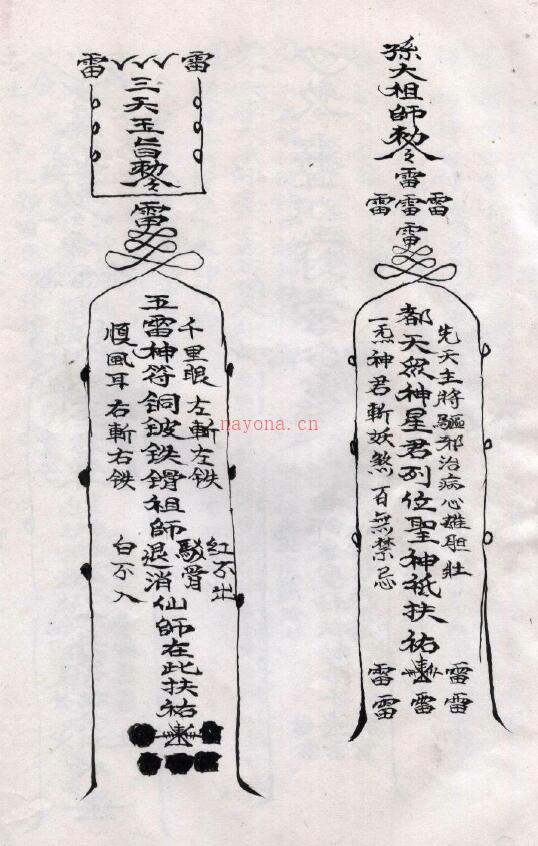 孫大祖師勅令
雷
雷雷雷
雷
先天主將驅邪治病心雄胆壯
都天眾神星君列位聖神祇扶祐
一炁神君斬妖煞百無禁忌
雷 雷
雷雷雷
雷 雷
三天玉旨勅令
雷
千里眼左斬左鉄
紅不出
五雷神符铜皮鉄骨祖師退消仙師在此扶祐
駁骨
順風耳右斬右鉄
白不入
nayona.cn